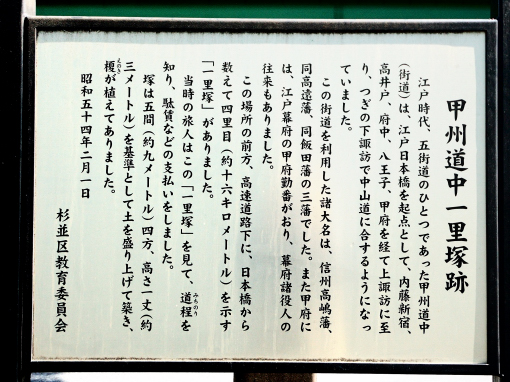 甲州道中一里塚跡
江戸時代、五街道のひとつであった甲州道中
(街道)は、江戸日本橋を起点として、内藤新宿、
高井戸、府中、八王子、甲府を経て上諏訪に至
り、つぎの下諏訪で中山道に合するようになっ
ていました。
この街道を利用した諸大名は、信州高嶋藩、
同高遠藩、同飯田藩の三藩でした。また甲府に
は、江戸幕府の甲府勤番がおり、幕府諸役人の
往来もありました。
この場所の前方、高速道路下に、日本橋から
数えて四里目(約十六キロメートル)を示す
「一里塚」がありました。
当時の旅人はこの「一里塚」を見て、道程を
みちのり
知り、駄賃などの支払いをしました。
塚は五間(約九メートル)四方、高さ一丈(約
三メートル)を基準として土を盛り上げて築き、
榎が植えてありました。
えのき
昭和五十四年二月一日
杉並区教育委員会